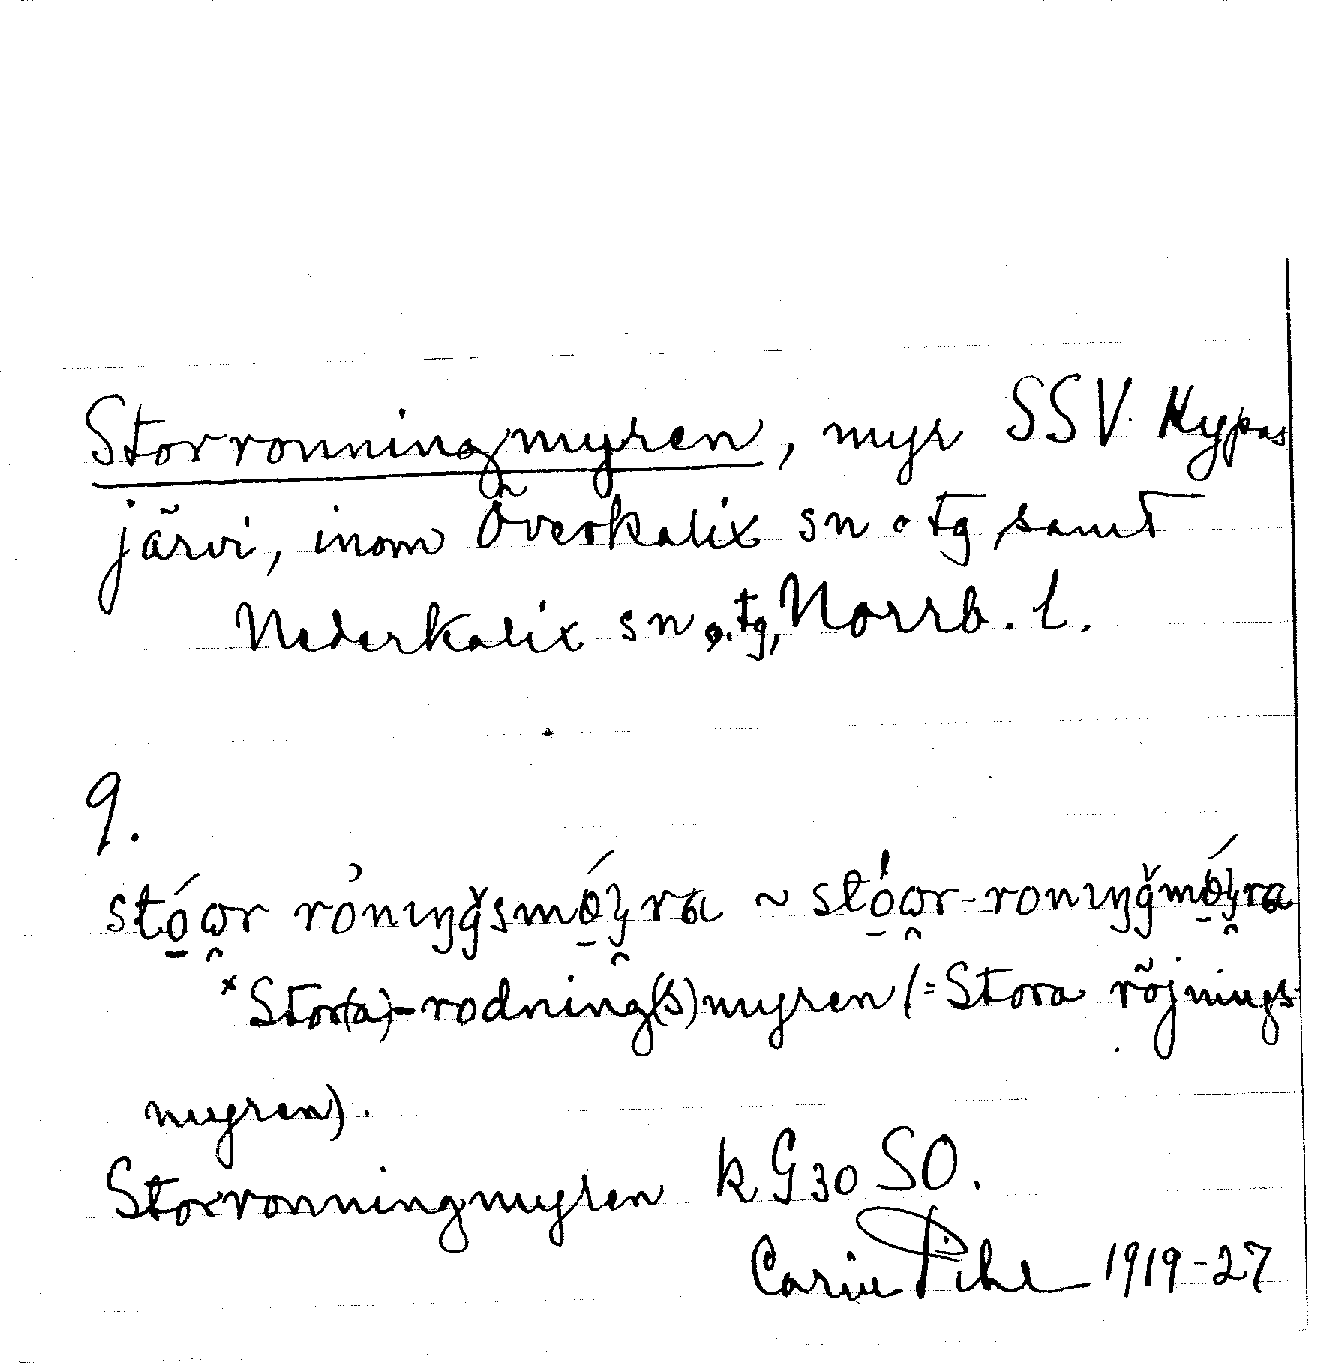 Storronningmyren, myr SSV Hypas
järvi, inom Överkalix sn o tg samt
Nederkalix sn o. tg, Norrb. l.
9.
*Stor(a)-rodning(s)myren (= Stora röjnings-
myren).
Storronningmyren k G30 SO.
Carin Pihl 1919-27